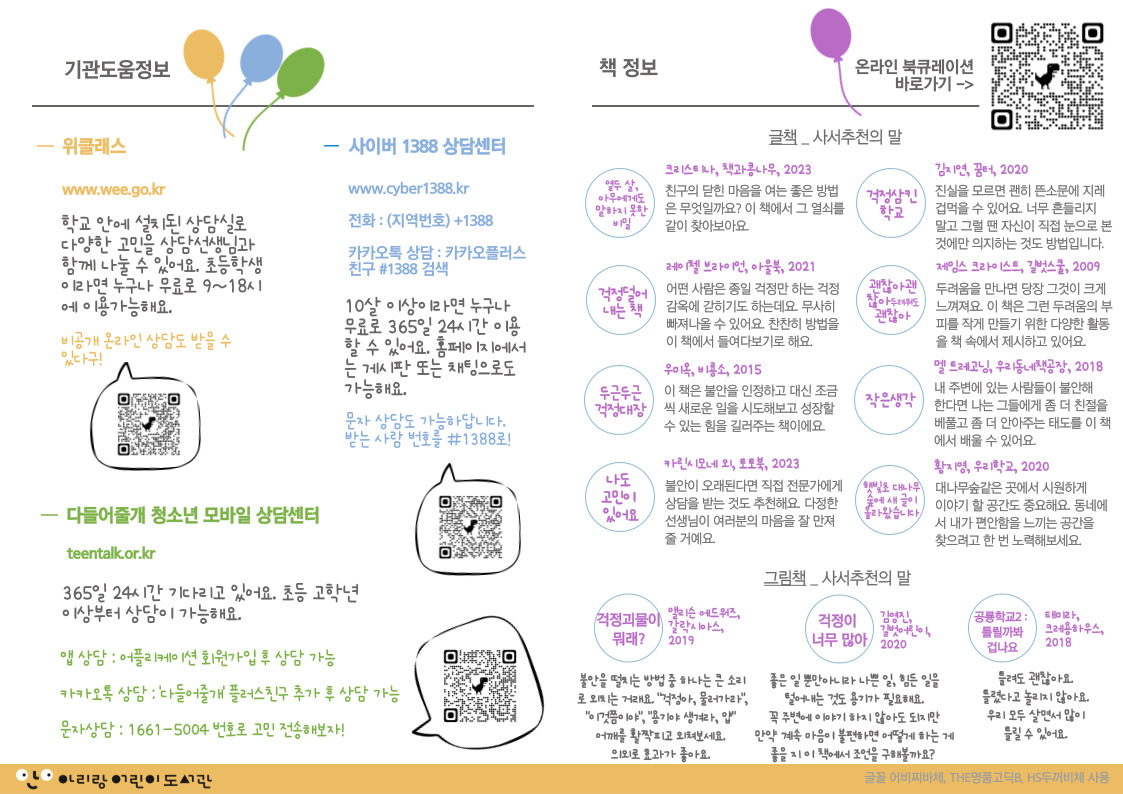 기관도움정보
위클래스
www.wee.go.kr
학교 안에 설치된 상담실로
다양한 고민을 상담선생님과
함께 나눌 수 있어요. 초등학생
이라면 누구나 무료로 9~18시
에 이용가능해요.
비공개 온라인 상담도 받을 수
있다구!
사이버 1388 상담센터
www.cyber1388.kr
전화 : (지역번호) +1388
카카오톡 상담 : 카카오플러스
친구 #1388 검색
10살 이상이라면 누구나
무료로 365일 24시간 이용
할 수 있어요. 홈페이지에서
는 게시판 또는 채팅으로도
가능해요.
문자 상담도 가능하답니다.
받는 사람 번호를 #1388로!
다들어줄개 청소년 모바일 상담센터
teentalk.or.kr
365일 24시간 기다리고 있어요. 초등 고학년
이상부터 상담이 가능해요.
앱 상담 : 어플리케이션 회원가입 후 상담 가능
카카오톡 상담 : '다들어줄개' 플러스친구 추가 후 상담 가능
문자상담 : 1661-5004 번호로 고민 전송해보자!
책 정보
온라인 북큐레이션
바로가기 ->
글책 _ 사서추천의 말
열두 살,
아무에게도
말하지 못한
비밀
크리스티나, 책과콩나무, 2023
친구의 닫힌 마음을 여는 좋은 방법
은 무엇일까요? 이 책에서 그 열쇠를
같이 찾아보아요.
걱정삼킨
학교
김지연, 꿈터, 2020
진실을 모르면 괜히 뜬소문에 지레
겁먹을 수 있어요. 너무 흔들리지
말고 그럴 땐 자신이 직접 눈으로 본
것에만 의지하는 것도 방법입니다.
걱정덜어
내는 책
레이첼 브라이언, 아울북, 2021
어떤 사람은 종일 걱정만 하는 걱정
감옥에 갇히기도 하는데요. 무사히
빠져나올 수 있어요. 찬찬히 방법을
이 책에서 들여다보기로 해요.
괜찮아괜
찮아두려워도
괜찮아
제임스 크라이스트, 길벗스쿨, 2009
두려움을 만나면 당장 그것이 크게
느껴져요. 이 책은 그런 두려움의 부
피를 작게 만들기 위한 다양한 활동
을 책 속에서 제시하고 있어요.
두근두근
걱정대장
우미옥, 비룡소, 2015
이 책은 불안을 인정하고 대신 조금
씩 새로운 일을 시도해보고 성장할
수 있는 힘을 길러주는 책이에요.
작은생각
멜 트레고닝, 우리동네책공장, 2018
내 주변에 있는 사람들이 불안해
한다면 나는 그들에게 좀 더 친절을
베풀고 좀 더 안아주는 태도를 이 책
에서 배울 수 있어요.
나도
고민이
있어요
카린시모네 외, 토토북, 2023
불안이 오래된다면 직접 전문가에게
상담을 받는 것도 추천해요. 다정한
선생님이 여러분의 마음을 잘 만져
줄 거예요.
햇빛초 대나무
숲에 새 글이
올라왔습니다
황지영, 우리학교, 2020
대나무숲같은 곳에서 시원하게
이야기 할 공간도 중요해요. 동네에
서 내가 편안함을 느끼는 공간을
찾으려고 한 번 노력해보세요.
그림책 _ 사서추천의 말
걱정괴물이
뭐래?
앨리슨 에드워즈,
갈락시아스,
2019
불안을 떨치는 방법 중 하나는 큰 소리
로 외치는 거래요. "걱정아, 물러가라",
"이겨쯤이야", "용기야 생겨라, 얍"
어깨를 활짝피고 외쳐보세요.
의외로 효과가 좋아요.
걱정이
너무 많아
김영진,
길벗어린이,
2020
좋은 일 뿐만아니라 나쁜 일, 힘든 일을
털어내는 것도 용기가 필요해요.
꼭 주변에 이야기 하지 않아도 되지만
만약 계속 마음이 불편하면 어떻게 하는 게
좋을 지 이 책에서 조언을 구해볼까요?
공룡학교2 :
틀릴까봐
겁나요
태미라,
크레용하우스,
2018
틀려도 괜찮아요.
틀렸다고 놀리지 않아요.
우리 모두 살면서 많이
틀릴 수 있어요.
아리랑 어린이 도서관
글꼴 어비찌바체, THE명품고딕B, HS두꺼비체 사용